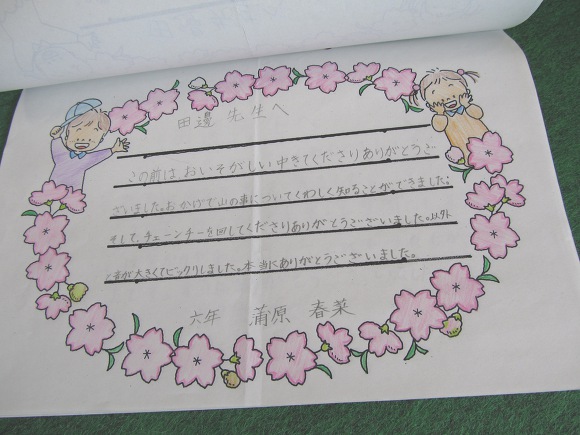 田邊 先生へ
この前は、おいそがしい中きてくださりありがとうご
ざいました。おかげで山の事についてくわしく知ることができました。
そして、チェーンソーを回してくださりありがとうございました。以外
と音が大きくてビックリしました。本当にありがとうございました。
六年 蒲原 春菜